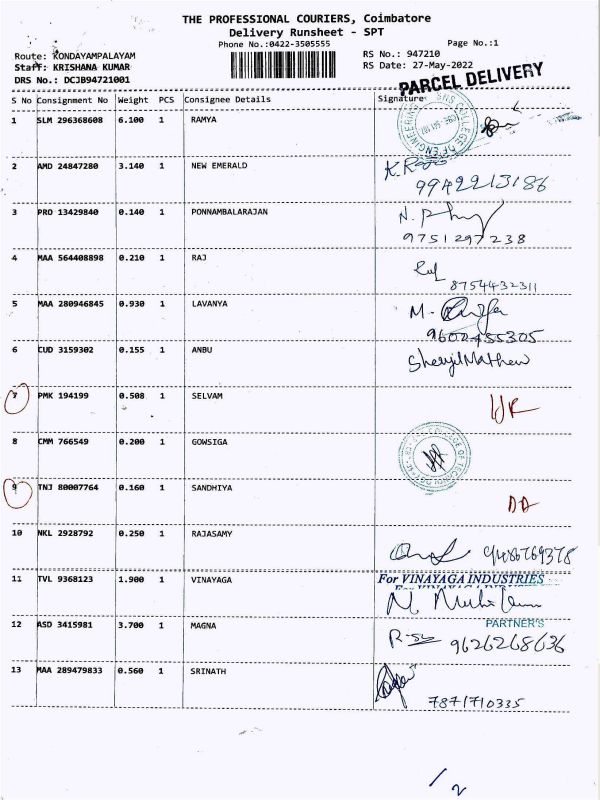 THE PROFESSIONAL COURIERS, Coimbatore
Delivery Runsheet - SPT
Phone No.:0422-3505555
Page No.:1
Route: KONDAYAMPALAYAM
RS No.: 947210
Staff: KRISHANA KUMAR
RS Date: 27-May-2022
DRS No.: DCJB94721001
PARCEL DELIVERY
S No Consignment No Weight PCS Consignee Details Signature
1 SLM 296368608 6.100 1 RAMYA
2 AMD 24847280 3.140 1 NEW EMERALD
9942213186
3 PRO 13429840 0.140 1 PONNAMBALARAJAN
9751297238
4 MAA 564408898 0.210 1 RAJ
8754432311
5 MAA 280946845 0.930 1 LAVANYA
9600455305
6 CUD 3159302 0.155 1 ANBU
Sheryil Mathew
7 PMK 194199 0.508 1 SELVAM
8 CMM 766549 0.200 1 GOWSIGA
9 TNJ 80007764 0.160 1 SANDHIYA
10 NKL 2928792 0.250 1 RAJASAMY
9486769378
11 TVL 9368123 1.900 1 VINAYAGA For VINAYAGA INDUSTRIES
PARTNER'S
12 ASD 3415981 3.700 1 MAGNA
9626268636
13 MAA 289479833 0.560 1 SRINATH
7871710335
1/2